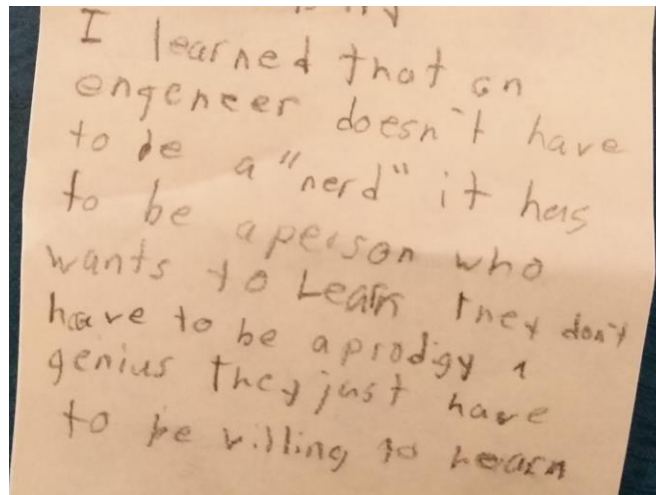 I learned that an
engeneer doesn't have
to be a "nerd" it has
to be a person who
wants to Learn They don't
have to be a prodigy
genius They just have
to be willing to Learn